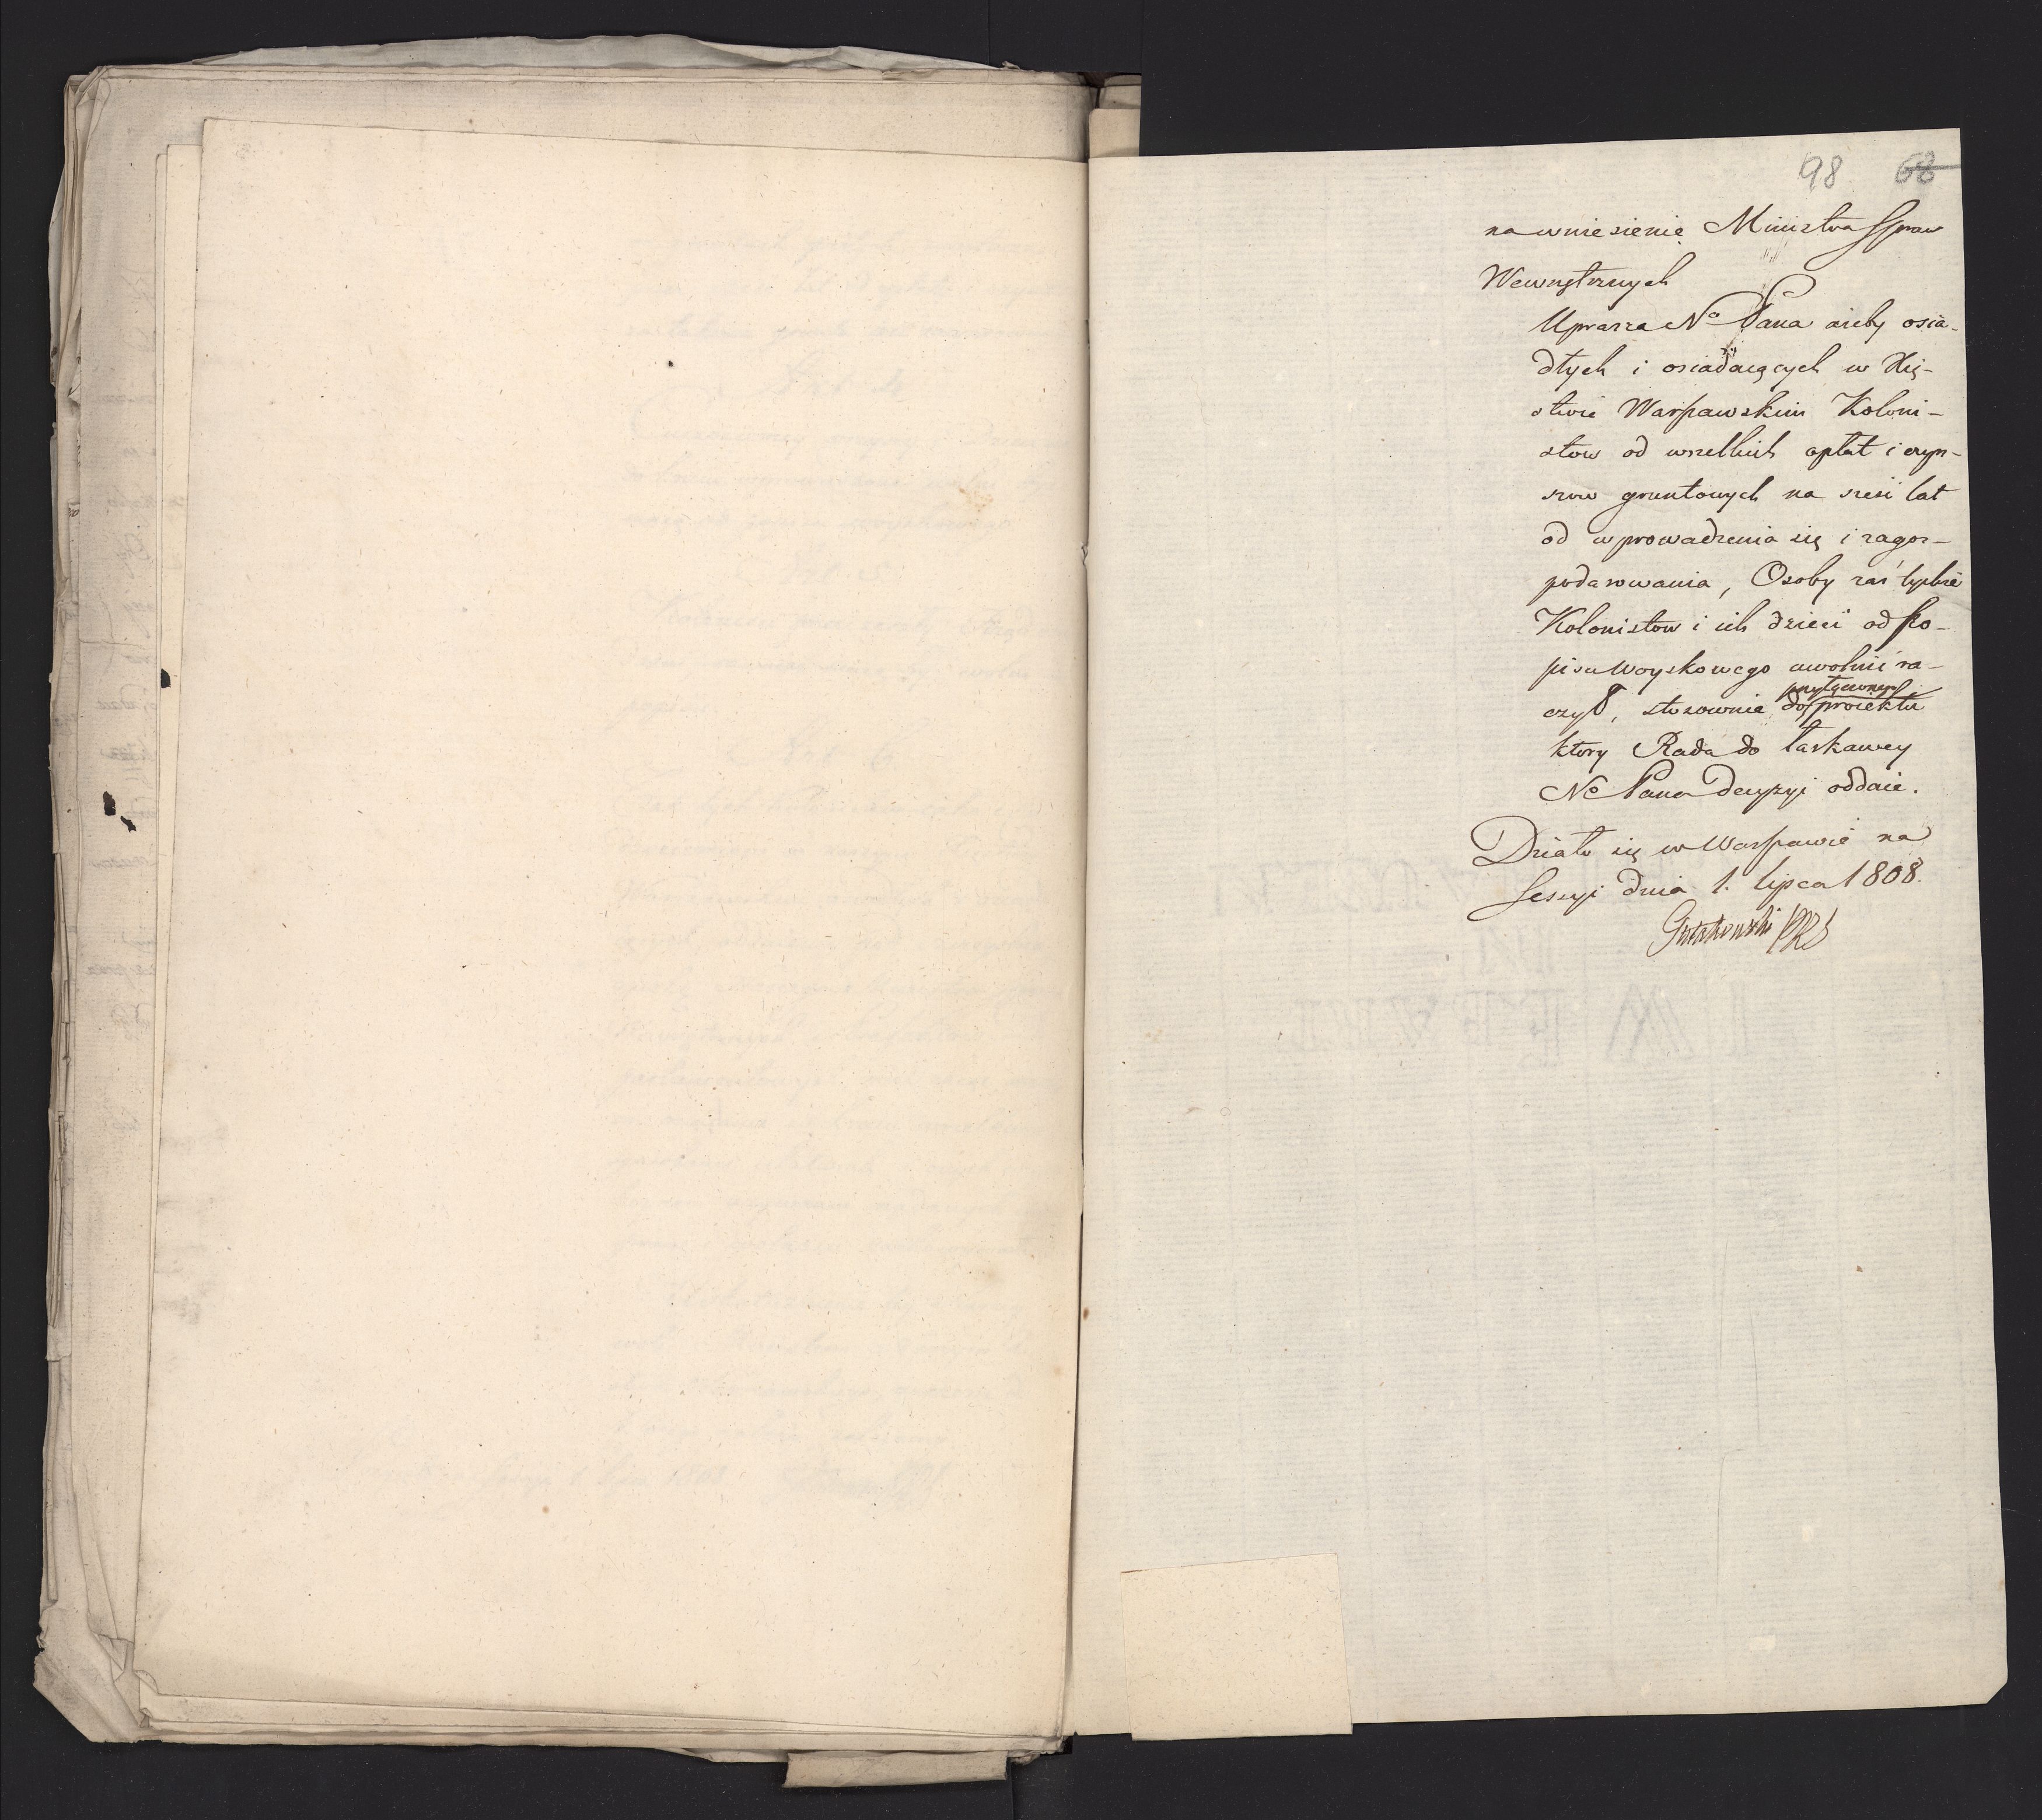 98 68
na wniesienie Ministra Spraw
Wewnętrznych
Uprasza No Pana ażeby osia-
dłych i osiadaiących w Xię-
stwie Warszawskim Koloni-
stow od wszelkich opłat i czyn-
szow gruntowych na sześć lat
od wprowadzenia się i zagos-
podarowania, Osoby zaś tychże
Kolonistow i ich dzieci od Po-
pisu Woyskowego uwolnić ra-
czył, stosownie do proiektu
przyłączonego
ktory Rada do łaskawey
No Pana decyzyi oddaie.
Działo się w Warszawie na
Sessyi dnia 1. lipca 1808.
Gutakowski PRS